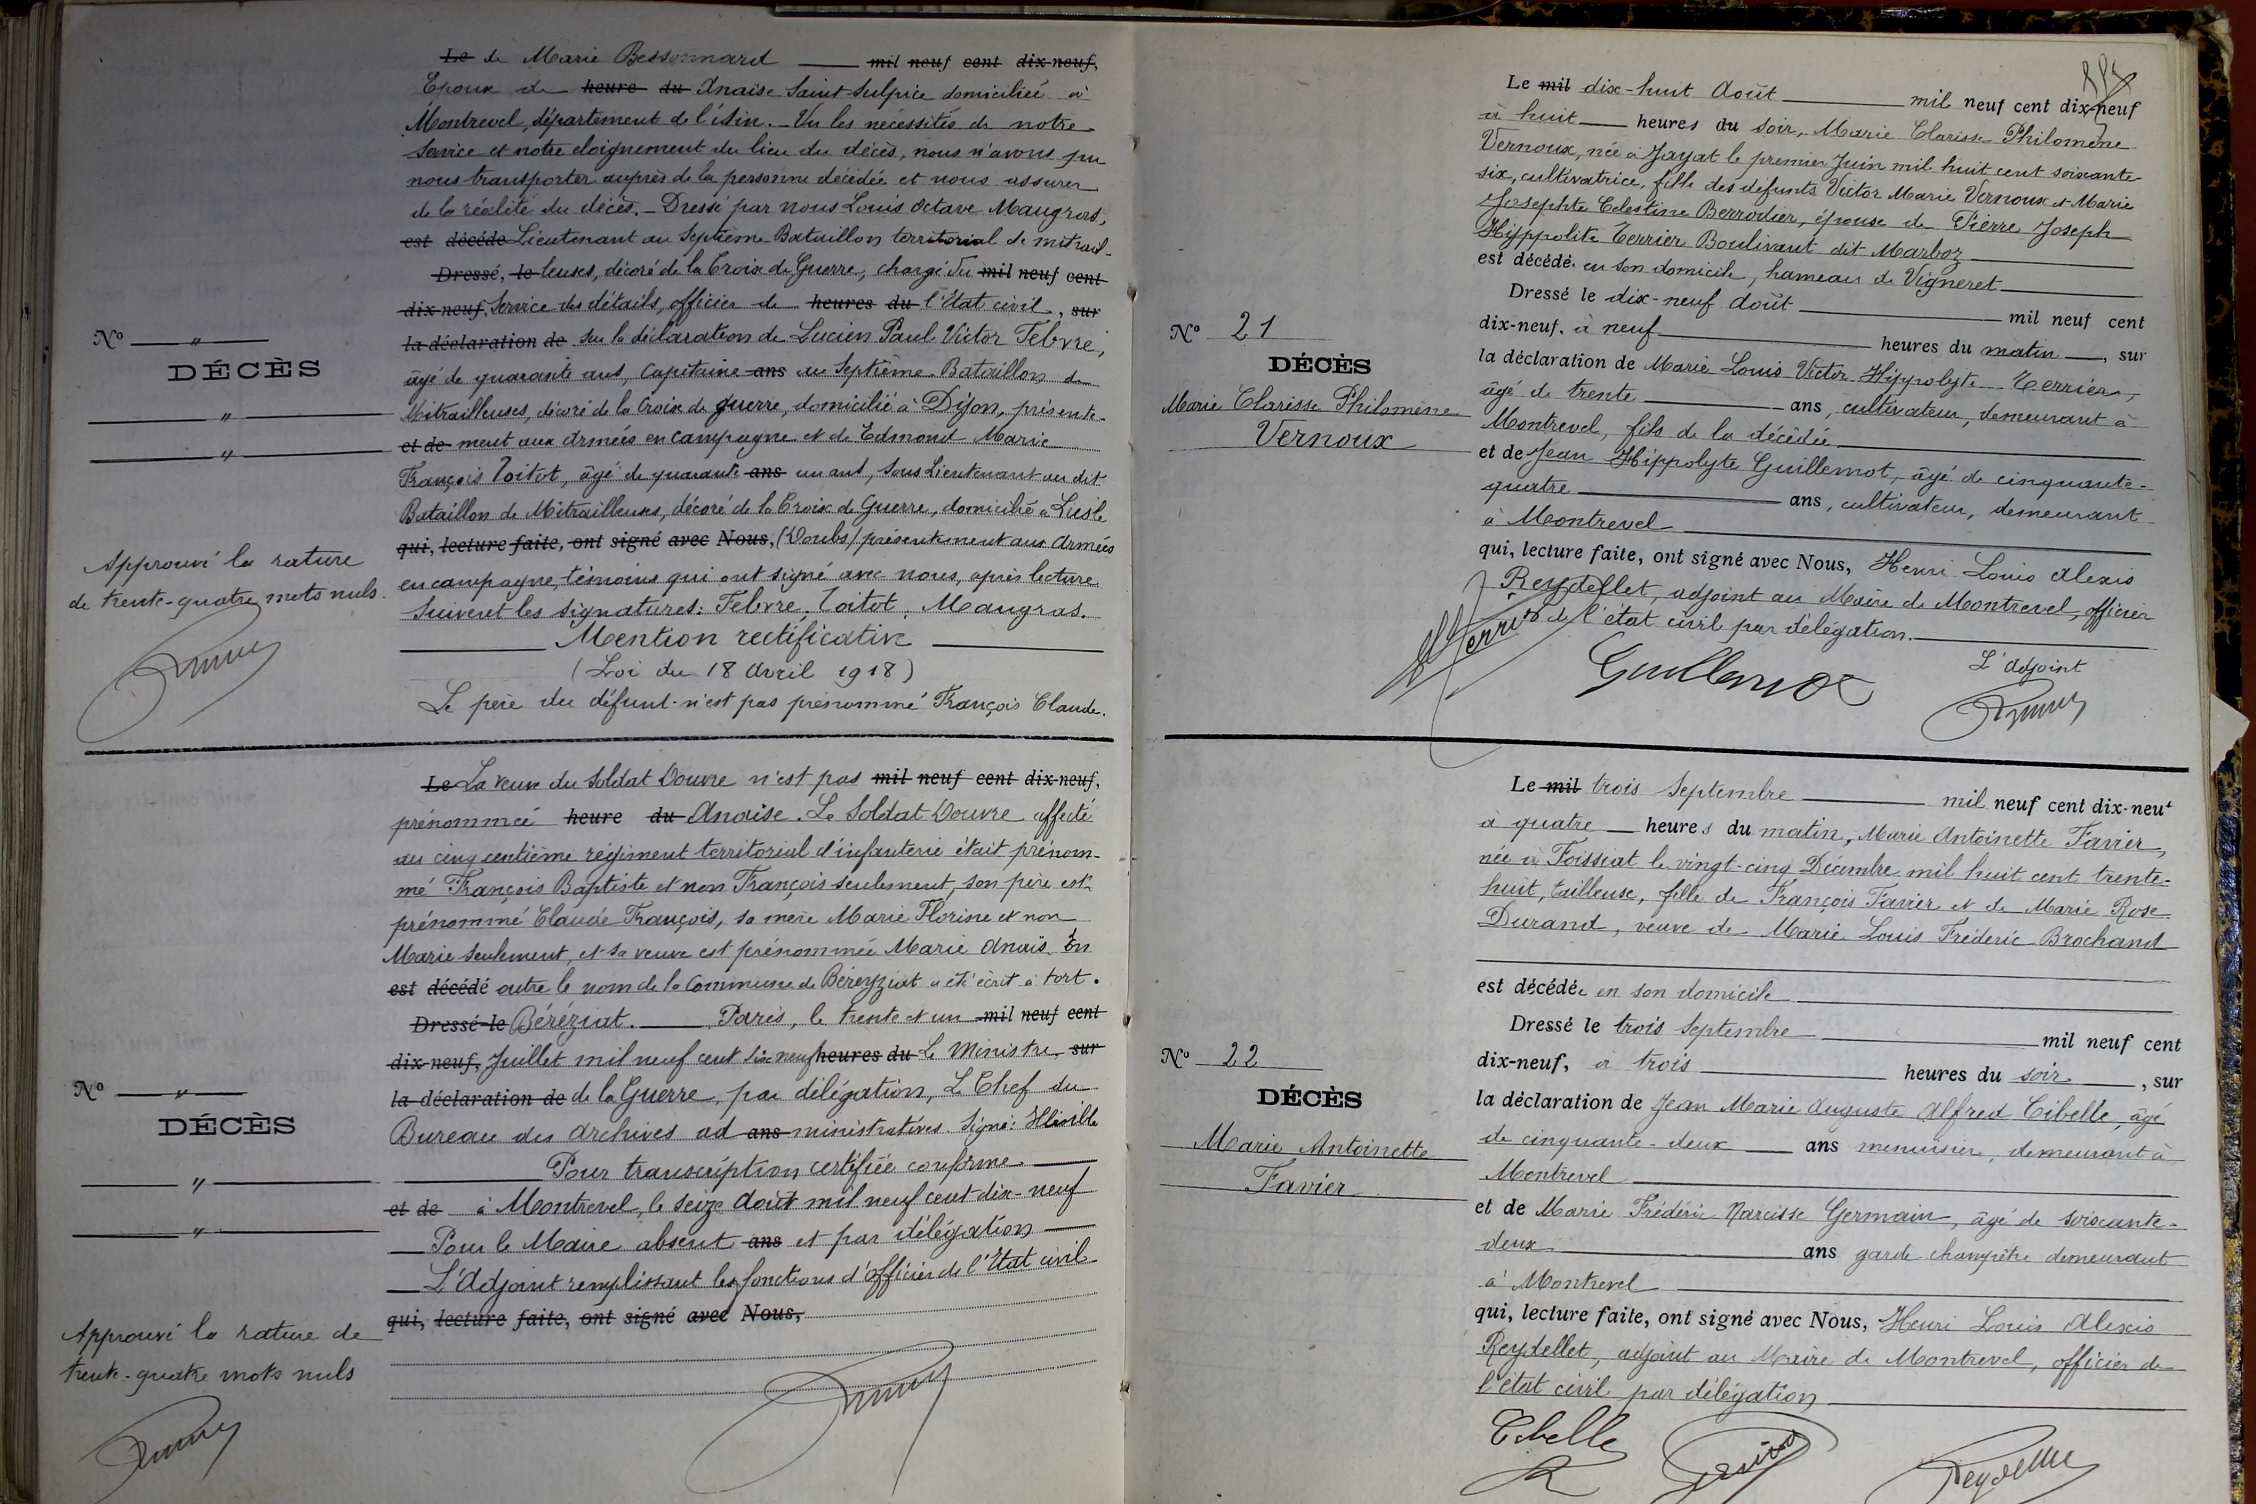 Le de Marie Bessonnard mil neuf cent dix-neuf,
Epoux de heure du Anaïse Saint-Sulpice domiciliée à
Montrevel, département de l'Ain. _ Vu les nécessités de notre
Service et notre éloignement du lieu du décès, nous n'avons pu
nous transporter auprès de la personne décédée et nous assurer
de la réalité du décès. _ Dressé par nous Louis Octave Maugras,
est décédé Lieutenant au Septième Bataillon territorial de mitrail-
Dressé, le leuses, décoré de la Croix de Guerre, chargé du mil neuf cent
dix-neuf, Service des détails, officier de heures du l'Etat civil, sur
la déclaration de sur la déclaration de Lucien Paul Victor Febvre,
âgé de quarante ans, Capitaine ans au Septième Bataillon de
Mitrailleuses, décoré de la Croix de guerre, domicilié à Dijon, présente-
et de ment aux Armées en campagne et de Edmond Marie
François Toitot, âgé de quarante ans un ans, Sous Lieutenant au dit
Bataillon de Mitrailleuses, décoré de la Croix de Guerre, domicilié à L'isle
qui, lecture faite, ont signé avec Nous, (Doubs) présentement aux Armées
en campagne, témoins qui ont signé avec nous, après lecture
Suivent les signatures: Febvre, Toitot, Maugras.
Mention rectificative
(Loi du 18 Avril 1918)
Le père du défunt n'est pas prénommé François Claude.
Nº "
DÉCÈS
"
"
Approuvé la rature
de trente-quatre mots nuls.
Le La veuve du Soldat Douvre n'est pas mil neuf cent dix-neuf,
prénommée heure du Anaïse. Le Soldat Douvre affecté
au cinq centième régiment territorial d'infanterie était prénom-
mé François Baptiste et non François seulement, son père est
prénommé Claude François, sa mère Marie Florine et non
Marie seulement, et sa veuve est prénommée Marie Anaïs. En
est décédé outre le nom de la Commune de Béreyziat a été écrit à tort.
Dressé le Béréziat. Paris, le trente et un mil neuf cent
dix-neuf, Juillet mil neuf cent dix neuf heures du Le Ministre sur
la déclaration de de la Guerre, par délégation, L Chef du
Bureau des Archives ad ans ministratives. Signé:
Pour transcription certifiée conforme.
et de à Montrevel, le seize Août mil neuf cent dix-neuf
Pour le Maire absent ans et par délégation
L'Adjoint remplissant les fonctions d'officier de l'Etat civil
qui, lecture faite, ont signé avec Nous,
Nº "
DÉCÈS
"
"
Approuvé la rature de
trente-quatre mots nuls
Le mil dix-huit Août mil neuf cent dix-neuf
à huit heures du soir, Marie Clarisse Philomène
Vernoux, née à Jayat le premier Juin mil huit cent soixante-
six, cultivatrice, fille des défunts Victor Marie Vernoux et Marie
Josephte Célestine Berrodier, épouse de Pierre Joseph
Hippolite Terrier Boulivant dit Marboz
est décédé en son domicile, hameau de Vigneret
Dressé le dix-neuf Août mil neuf cent
dix-neuf, à neuf heures du matin, sur
la déclaration de Marie Louis Victor Hippolyte Terrier,
âgé de trente ans, cultivateur, demeurant à
Montrevel, fils de la décédée
et de Jean Hippolyte Guillemot, âgé de cinquante-
quatre ans, cultivateur, demeurant
à Montrevel
qui, lecture faite, ont signé avec Nous, Henri Louis Alexis
Reydellet, adjoint au Maire de Montrevel, officier
de l'état civil par délégation.
Guillemot
L'Adjoint
Nº 21
DÉCÈS
Marie Clarisse Philomène
Vernoux
Le mil trois Septembre mil neuf cent dix-neuf
à quatre heures du matin, Marie Antoinette Favier,
née à Foissiat le vingt-cinq Décembre mil huit cent trente-
huit, tailleuse, fille de François Favier et de Marie Rose
Durand, veuve de Marie Louis Fréderic Brochand
est décédée en son domicile
Dressé le trois Septembre mil neuf cent
dix-neuf, à trois heures du soir, sur
la déclaration de Jean Marie Auguste Alfred Cibelle, âgé
de cinquante-deux ans menuisier, demeurant à
Montrevel
et de Marie Frédéric Narcisse Germain, âgé de soixante-
deux ans garde-champêtre demeurant
à Montrevel
qui, lecture faite, ont signé avec Nous, Henri Louis Alexis
Reydellet, adjoint au Maire de Montrevel, officier de
l'état civil par délégation
Cibelle
Reydellet
Nº 22
DÉCÈS
Marie Antoinette
Favier